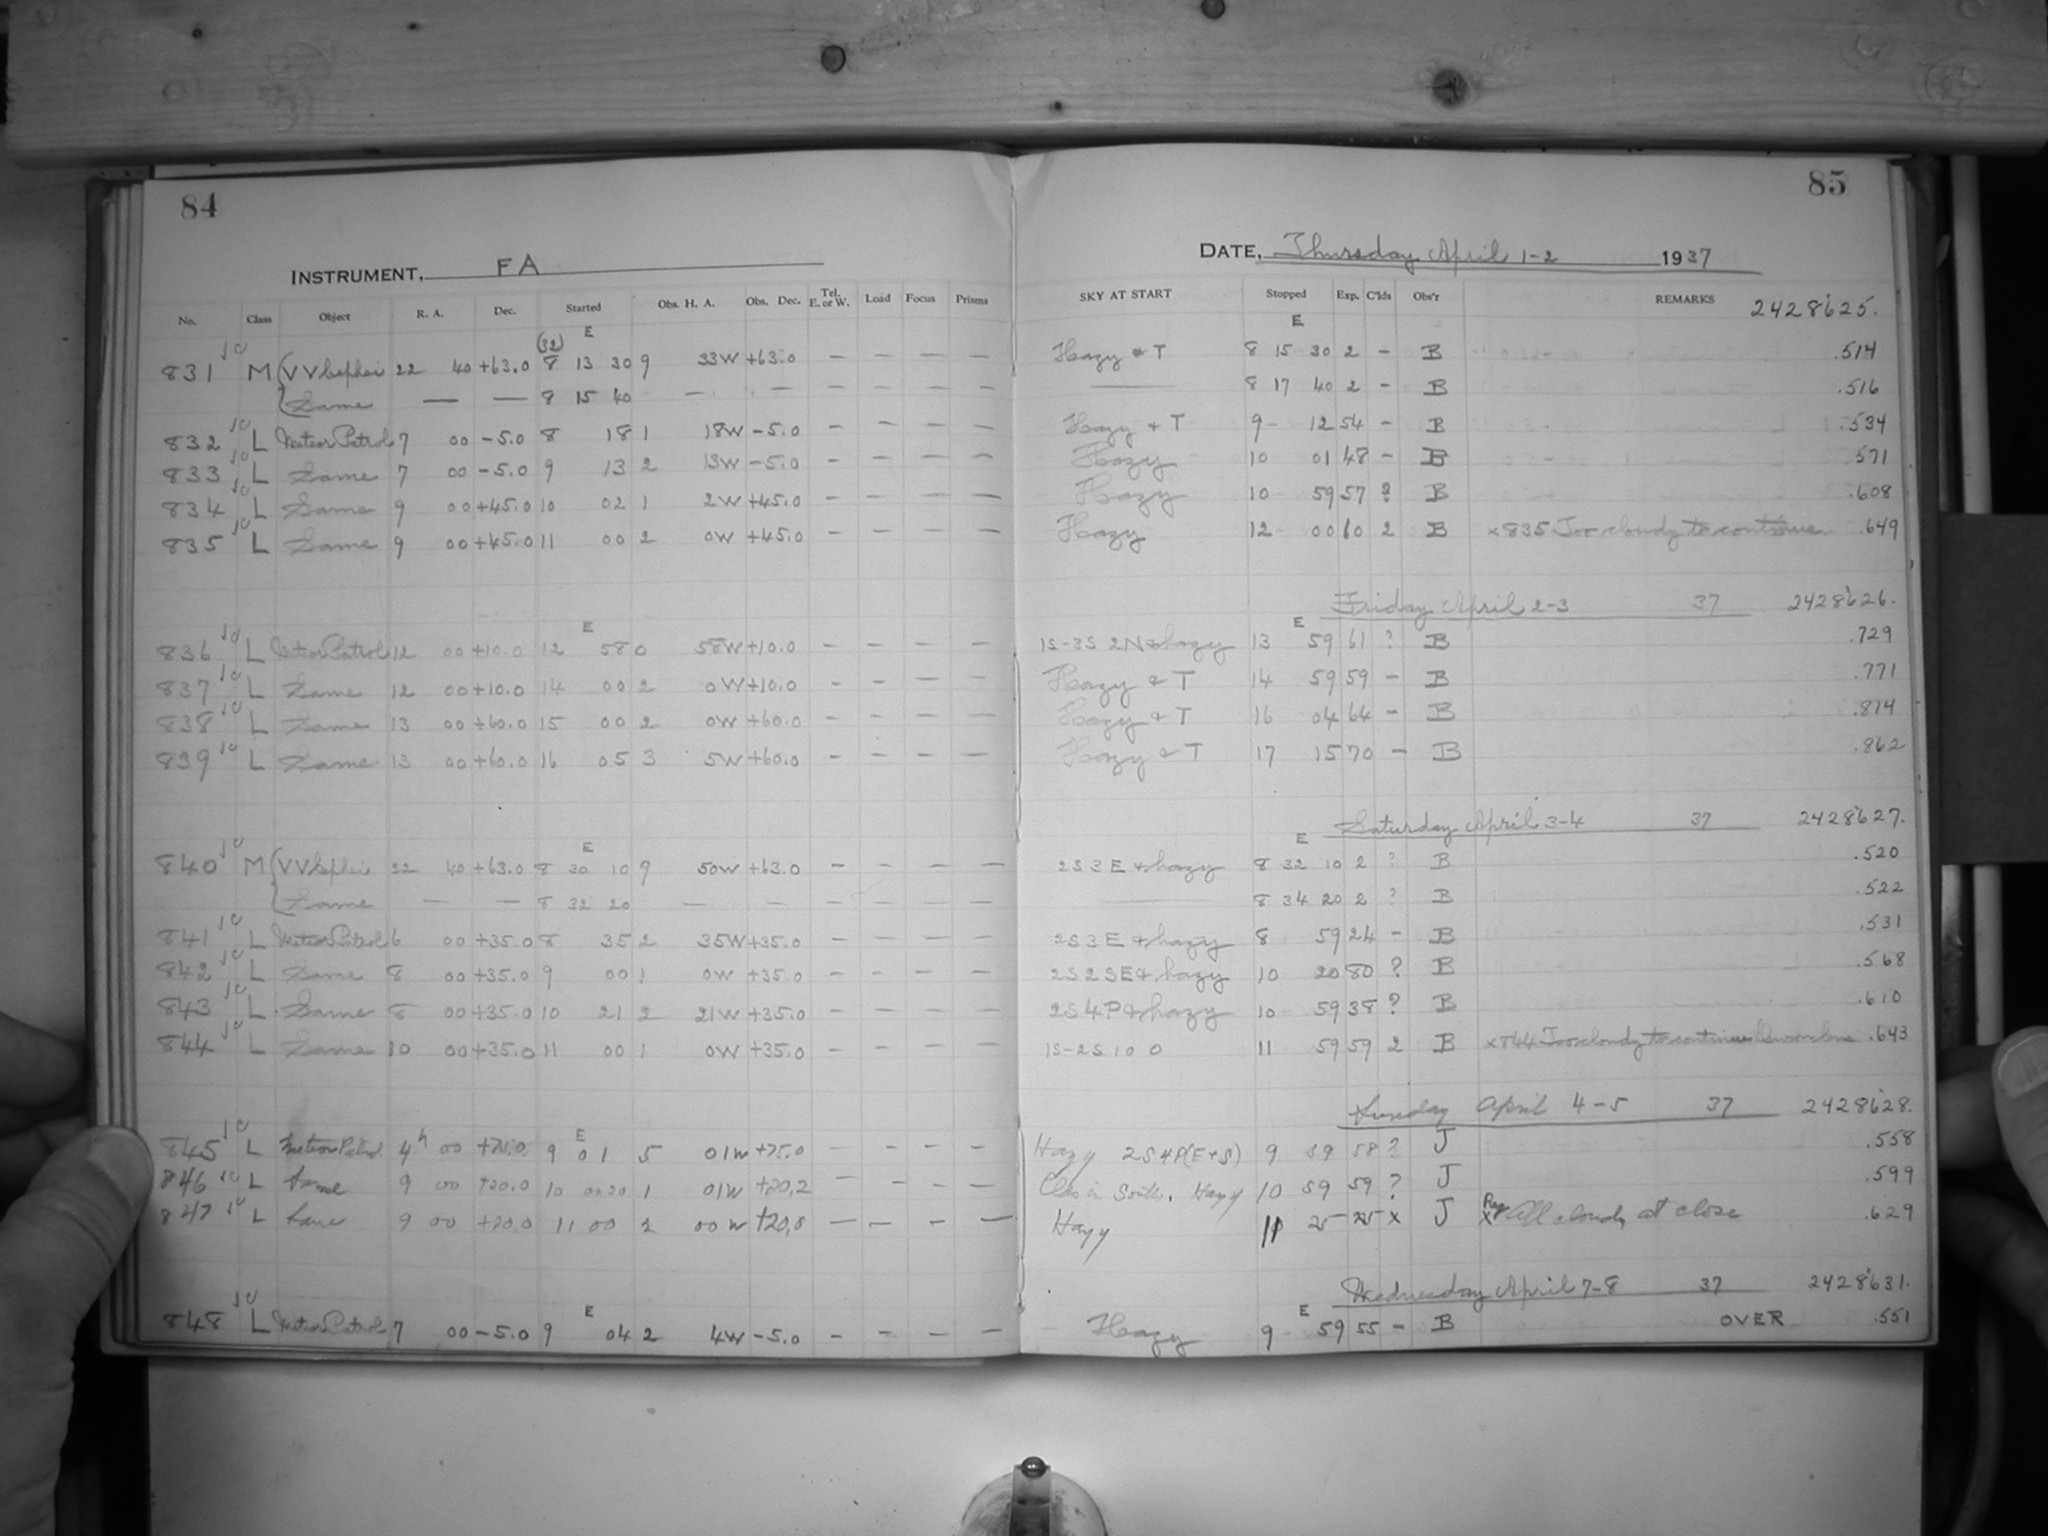 84
INSTRUMENT, FA
No. Class Object R. A. Dec. Started Obs. H. A. Obs. Dec. Tel. E. or W. Load Focus Prisms
(32) E
831 10 M VV Cephei 22 40 +63.0 8 13 30 9 33W +63.0 — — — —
Same — — 8 15 40 — — — — — —
832 10 L Meteor Patrol 7 00 -5.0 8 18 1 18W -5.0 — — — —
833 10 L Same 7 00 -5.0 9 13 2 13W -5.0 — — — —
834 10 L Same 9 00 +45.0 10 02 1 2W +45.0 — — — —
835 10 L Same 9 00 +45.0 11 00 2 0W +45.0 — — — —
E
836 10 L Meteor Patrol 12 00 +10.0 12 58 0 58W +10.0 — — — —
837 10 L Same 12 00 +10.0 14 00 2 0W +10.0 — — — —
838 10 L Same 13 00 +60.0 15 00 2 0W +60.0 — — — —
839 10 L Same 13 00 +60.0 16 05 3 5W +60.0 — — — —
E
840 10 M VV Cephei 22 40 +63.0 8 30 10 9 50W +63.0 — — — —
Same — — 8 32 20 — — — — — —
841 10 L Meteor Patrol 6 00 +35.0 8 35 2 35W +35.0 — — — —
842 10 L Same 8 00 +35.0 9 00 1 0W +35.0 — — — —
843 10 L Same 8 00 +35.0 10 21 2 21W +35.0 — — — —
844 10 L Same 10 00 +35.0 11 00 1 0W +35.0 — — — —
E
845 10 L Meteor Patrol 4h 00 +75.0 9 01 5 01W +75.0 — — — —
846 10 L Same 9 00 +20.0 10 00 20 1 01W +20.2 — — — —
847 10 L Same 9 00 +20.0 11 00 2 00W +20.0 — — — —
E
848 10 L Meteor Patrol 7 00 -5.0 9 04 2 4W -5.0 — — — —
85
DATE, Thursday April 1-2 1937
SKY AT START Stopped Exp. C'lds Obs'r REMARKS 2428625.
E
Hazy & T 8 15 30 2 — B .514
— 8 17 40 2 — B .516
Hazy & T 9 12 54 — B .534
Hazy 10 01 48 — B .571
Hazy 10 59 57 ? B .608
Hazy 12 00 60 2 B x835 Too cloudy to continue .649
Friday April 2-3 37 2428626.
E
1S-3S 2N & hazy 13 59 61 ? B .729
Hazy & T 14 59 59 — B .771
Hazy & T 16 04 64 — B .814
Hazy & T 17 15 70 — B .862
Saturday April 3-4 37 2428627.
E
2S 3E & hazy 8 32 10 2 ? B .520
— 8 34 20 2 ? B .522
2S 3E & hazy 8 59 24 — B .531
2S 2SE & hazy 10 20 80 ? B .568
2S 4P & hazy 10 59 38 ? B .610
1S-2S 10 0 11 59 59 2 B x844 Too cloudy to continue .643
Sunday April 4-5 37 2428628.
Hazy 2S4P(E+S) 9 59 58 ? J .558
in South. Hazy 10 59 59 ? J .599
Hazy 11 25 25 x J x All clouds at close .629
Wednesday April 7-8 37 2428631.
E
Hazy 9 59 55 — B OVER .551